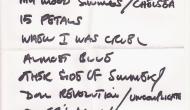 MY MOOD SWINGS / CHELSEA
15 PETALS
WHEN I WAS CRUEL
ALMOST BLUE
OTHER SIDE OF SUMMER /
DOLL REVOLUTION / UNCOMPLICATED